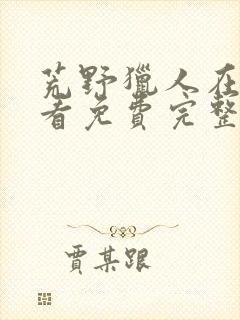 荒野獵人在
看免費完整
賈某跟